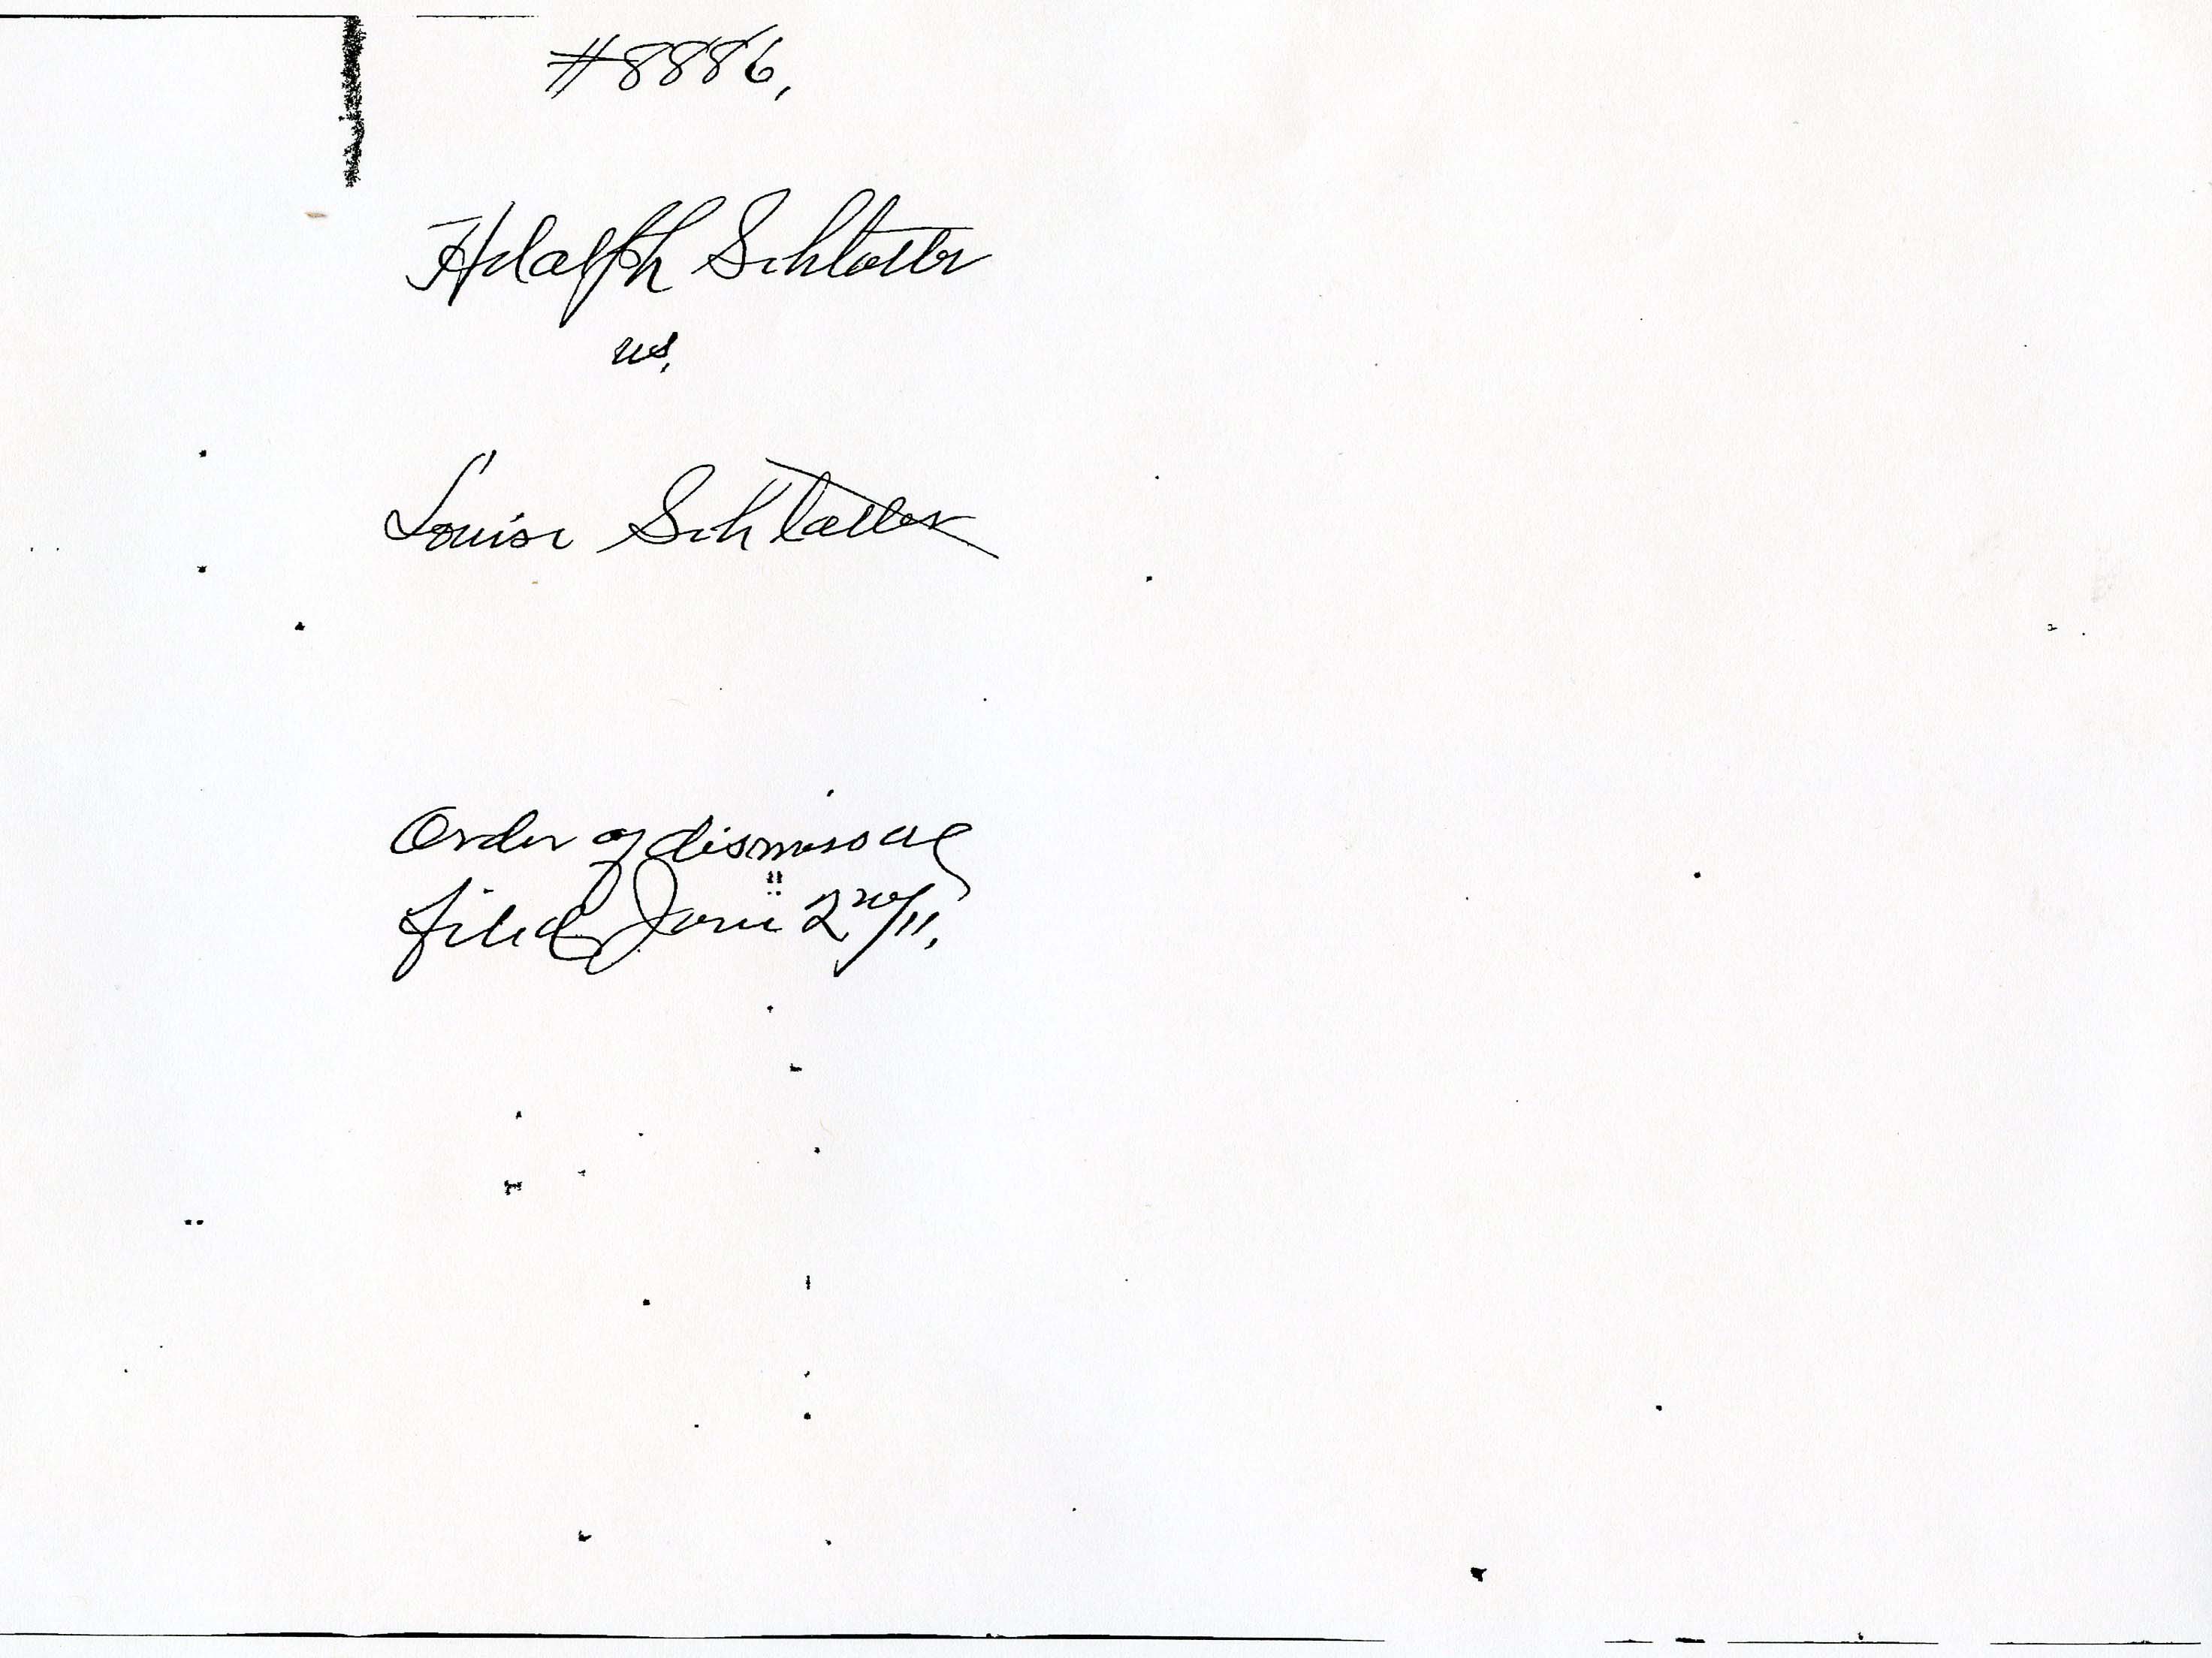 #8886,
Adalph Schlatter
vs.
Louise Schlatter
Order of dismissal
filed June 2nd/11.